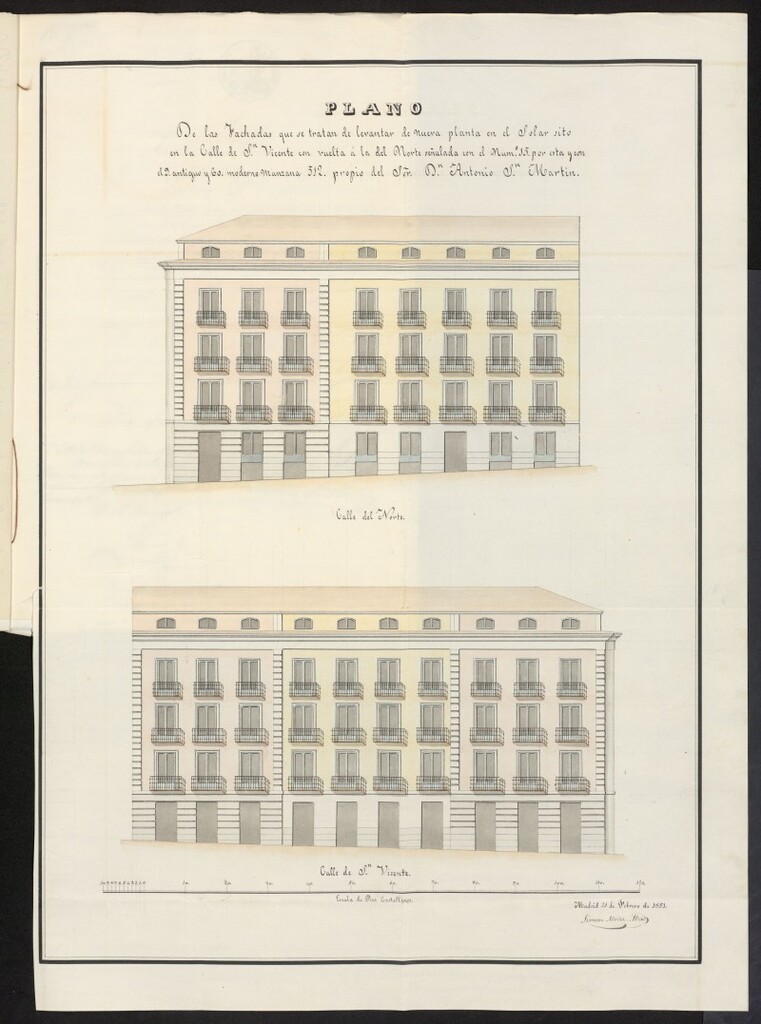 PLANO
De las Fachadas que se tratan de levantar de nueva planta en el Solar sito
en la Calle de Sn. Vicente con vuelta á la del Norte señalada con el Num.º 15. por esta y con
el 2. antiguo y 60. moderno Manzana 512. propio del Sor. Dn. Antonio Sn. Martin.
Calle del Norte.
Calle de Sn. Vicente.
Escala de Pies Castellanos.
Madrid 21 de Febrero de 1851.